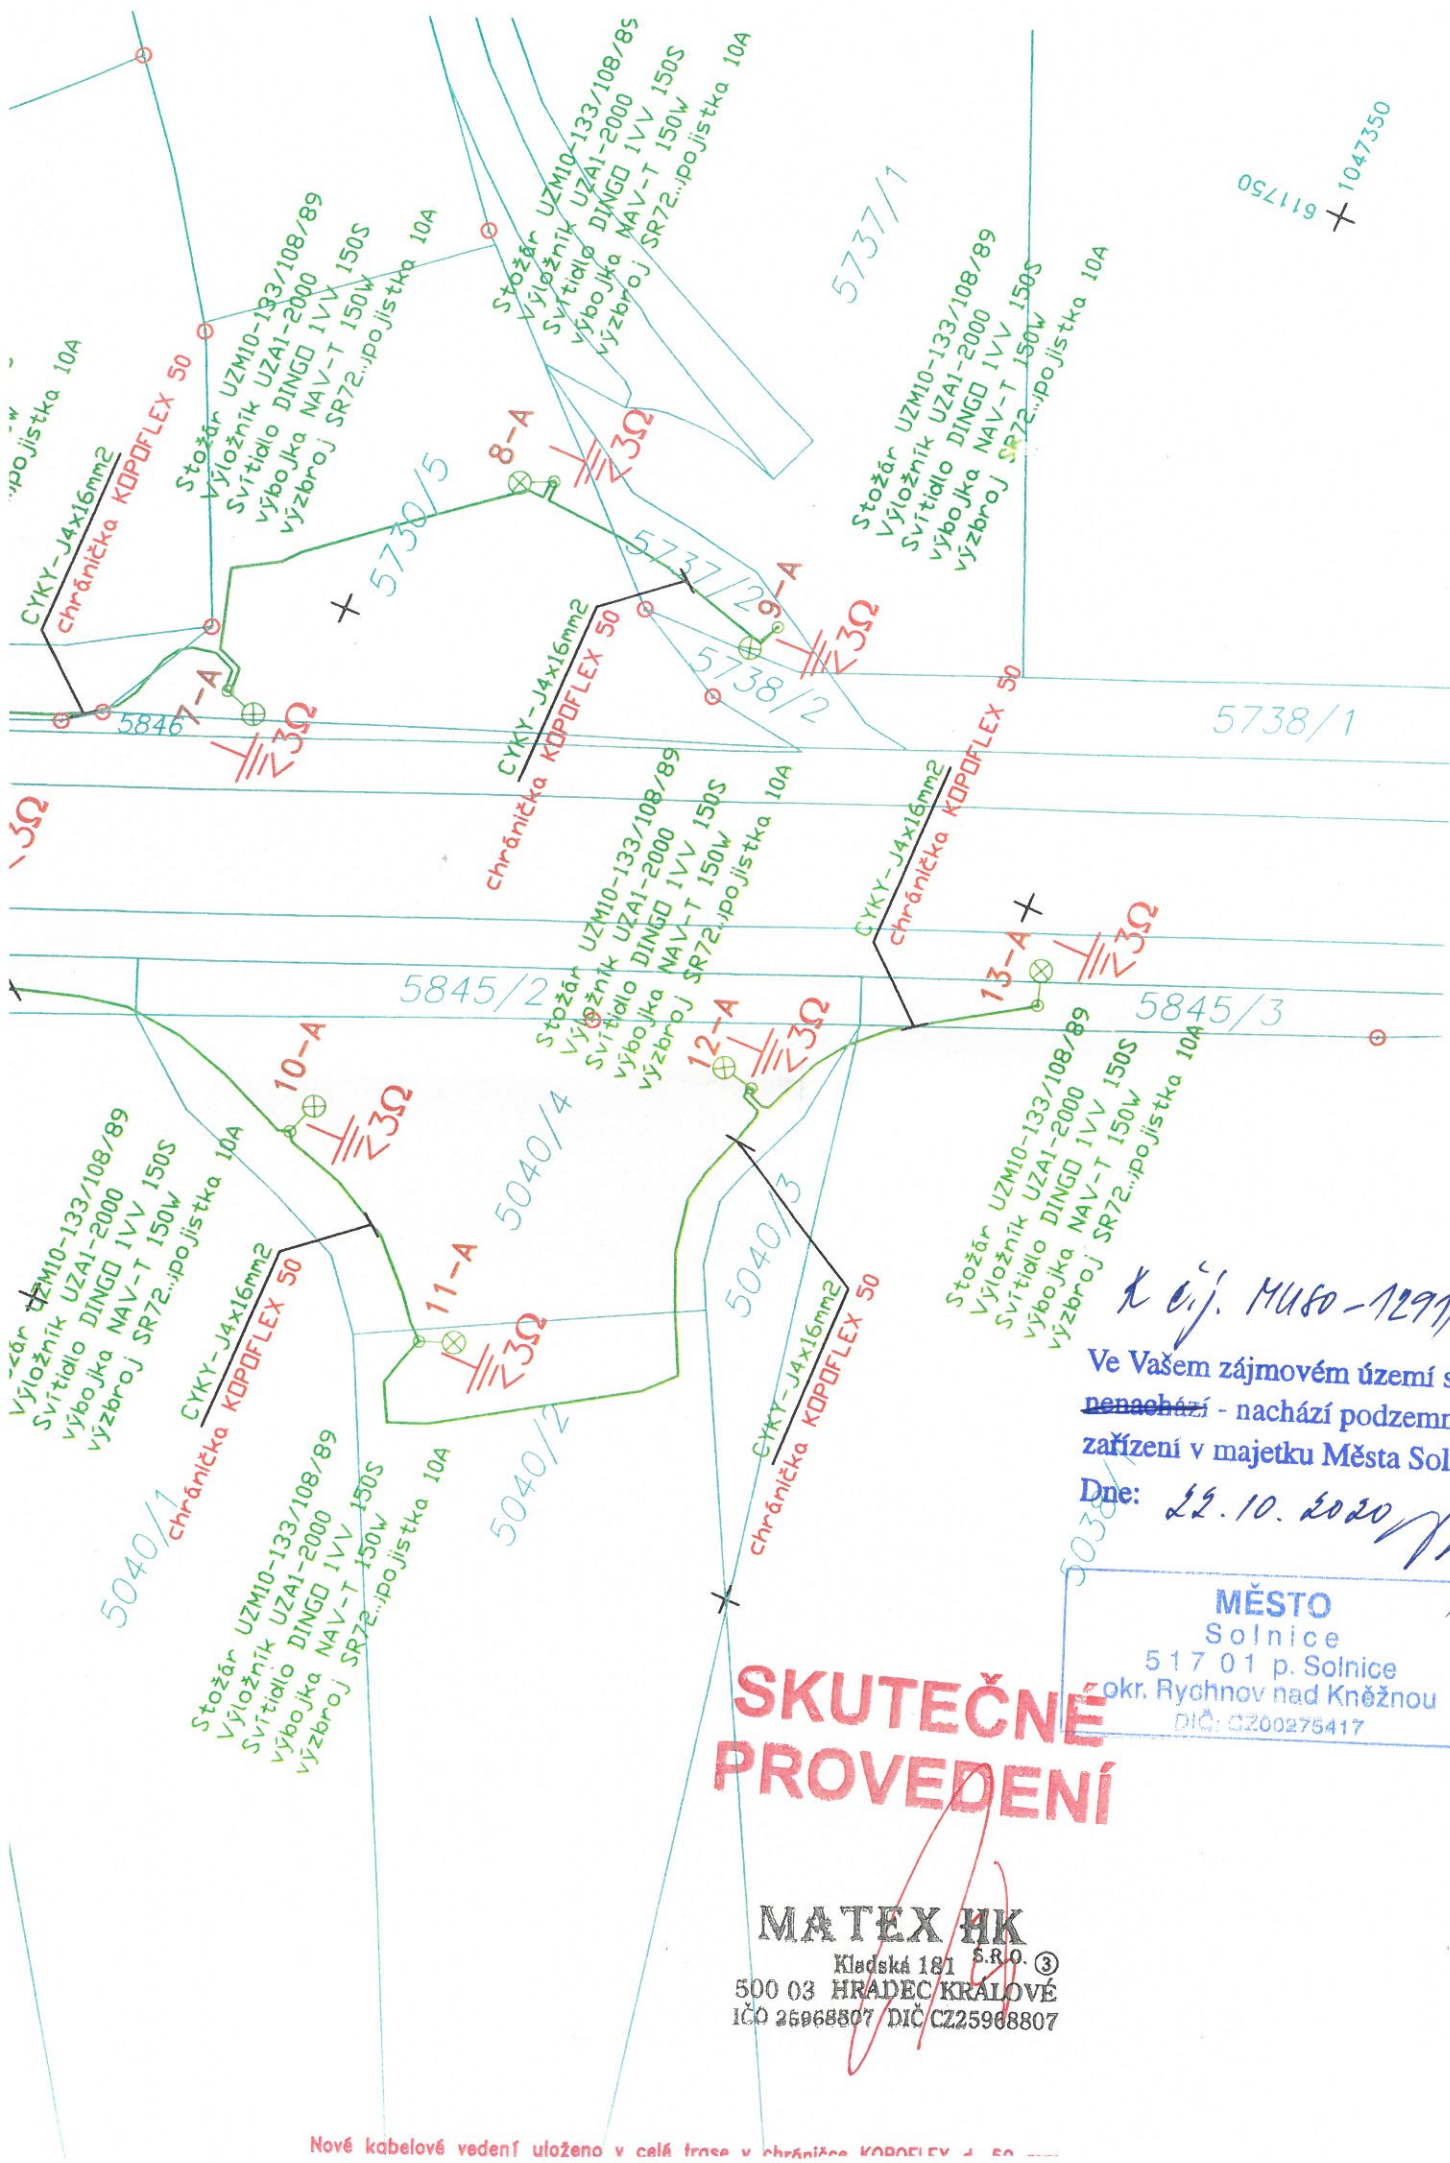 Stožár UZM10-133/108/89
Výložník UZA1-2000
Svítidlo DINGO 1VV 150S
výbojka NAV-T 150W
výzbroj SR72...pojistka 10A
5737/1
611750
1047350
Stožár UZM10-133/108/89
Výložník UZA1-2000
Svítidlo DINGO 1VV 150S
výbojka NAV-T 150W
výzbroj SR72...pojistka 10A
Stožár UZM10-133/108/89
Výložník UZA1-2000
Svítidlo DINGO 1VV 150S
výbojka NAV-T 150W
výzbroj SR72...pojistka 10A
pojistka 10A
CYKY-J4x16mm2
chránička KOPOFLEX 50
5730/5
8-A
<3Ω
5737/2
9-A
<3Ω
5738/2
CYKY-J4x16mm2
chránička KOPOFLEX 50
5846
7-A
<3Ω
5738/1
<3Ω
CYKY-J4x16mm2
chránička KOPOFLEX 50
Stožár UZM10-133/108/89
Výložník UZA1-2000
Svítidlo DINGO 1VV 150S
výbojka NAV-T 150W
výzbroj SR72...pojistka 10A
5845/2
13-A
<3Ω
5845/3
10-A
<3Ω
12-A
<3Ω
5040/4
UZM10-133/108/89
Výložník UZA1-2000
Svítidlo DINGO 1VV 150S
výbojka NAV-T 150W
výzbroj SR72...pojistka 10A
Stožár UZM10-133/108/89
Výložník UZA1-2000
Svítidlo DINGO 1VV 150S
výbojka NAV-T 150W
výzbroj SR72...pojistka 10A
CYKY-J4x16mm2
chránička KOPOFLEX 50
11-A
<3Ω
5040/3
CYKY-J4x16mm2
chránička KOPOFLEX 50
5040/2
5040/1
Stožár UZM10-133/108/89
Výložník UZA1-2000
Svítidlo DINGO 1VV 150S
výbojka NAV-T 150W
výzbroj SR72...pojistka 10A
K č.j. MUSO-1291
Ve Vašem zájmovém území s
nenachází - nachází podzemn
zařízení v majetku Města Sol
Dne: 22.10.2020
MĚSTO
Solnice
517 01 p. Solnice
okr. Rychnov nad Kněžnou
DIČ: CZ00275417
SKUTEČNÉ
PROVEDENÍ
MATEX HK
S.R.O. ③
Kladská 181
500 03 HRADEC KRÁLOVÉ
IČO 25968807 DIČ CZ25968807
Nové kabelové vedení uloženo v celé trase v chráničce KOPOFLEX d 50